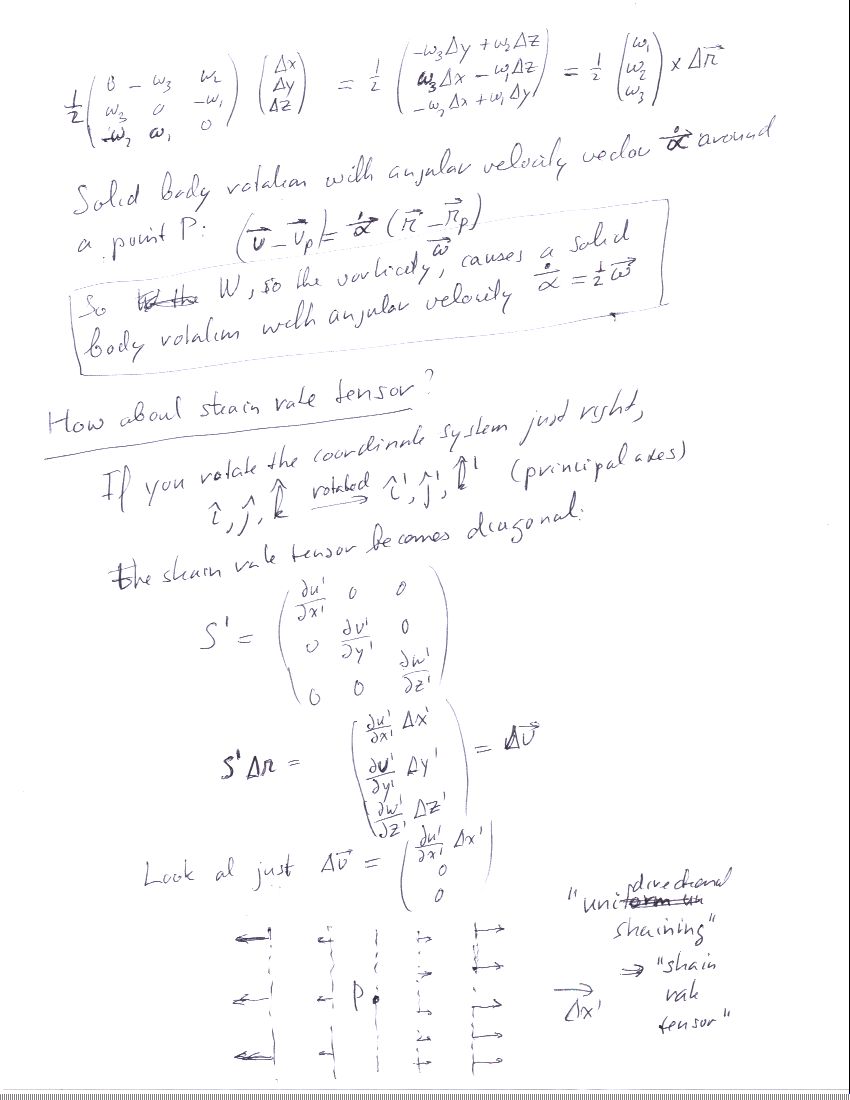 ½ ( 0 -ω₃ ω₂ ; ω₃ 0 -ω₁ ; -ω₂ ω₁ 0 ) ( Δx ; Δy ; Δz ) = ½ ( -ω₃Δy + ω₂Δz ; ω₃Δx - ω₁Δz ; -ω₂Δx + ω₁Δy ) = ½ ( ω₁ ; ω₂ ; ω₃ ) × Δr⃗
Solid body rotation with angular velocity vector α̇⃗ around
a point P: (v⃗ - v⃗p) = α̇⃗ (r⃗ - r⃗p)
So W, so the vorticity ω⃗, causes a solid
body rotation with angular velocity α̇⃗ = ½ω⃗
How about strain rate tensor?
If you rotate the coordinate system just right,
î, ĵ, k̂ rotated → î', ĵ', k̂' (principal axes)
the strain rate tensor becomes diagonal:
S' = ( ∂u'/∂x' 0 0 ; 0 ∂v'/∂y' 0 ; 0 0 ∂w'/∂z' )
S'Δr = ( ∂u'/∂x' Δx' ; ∂v'/∂y' Δy' ; ∂w'/∂z' Δz' ) = Δv⃗
Look at just Δv⃗ = ( ∂u'/∂x' Δx' ; 0 ; 0 )
"unidirectional
straining"
⇒ "strain
rate
tensor"
P
Δx'